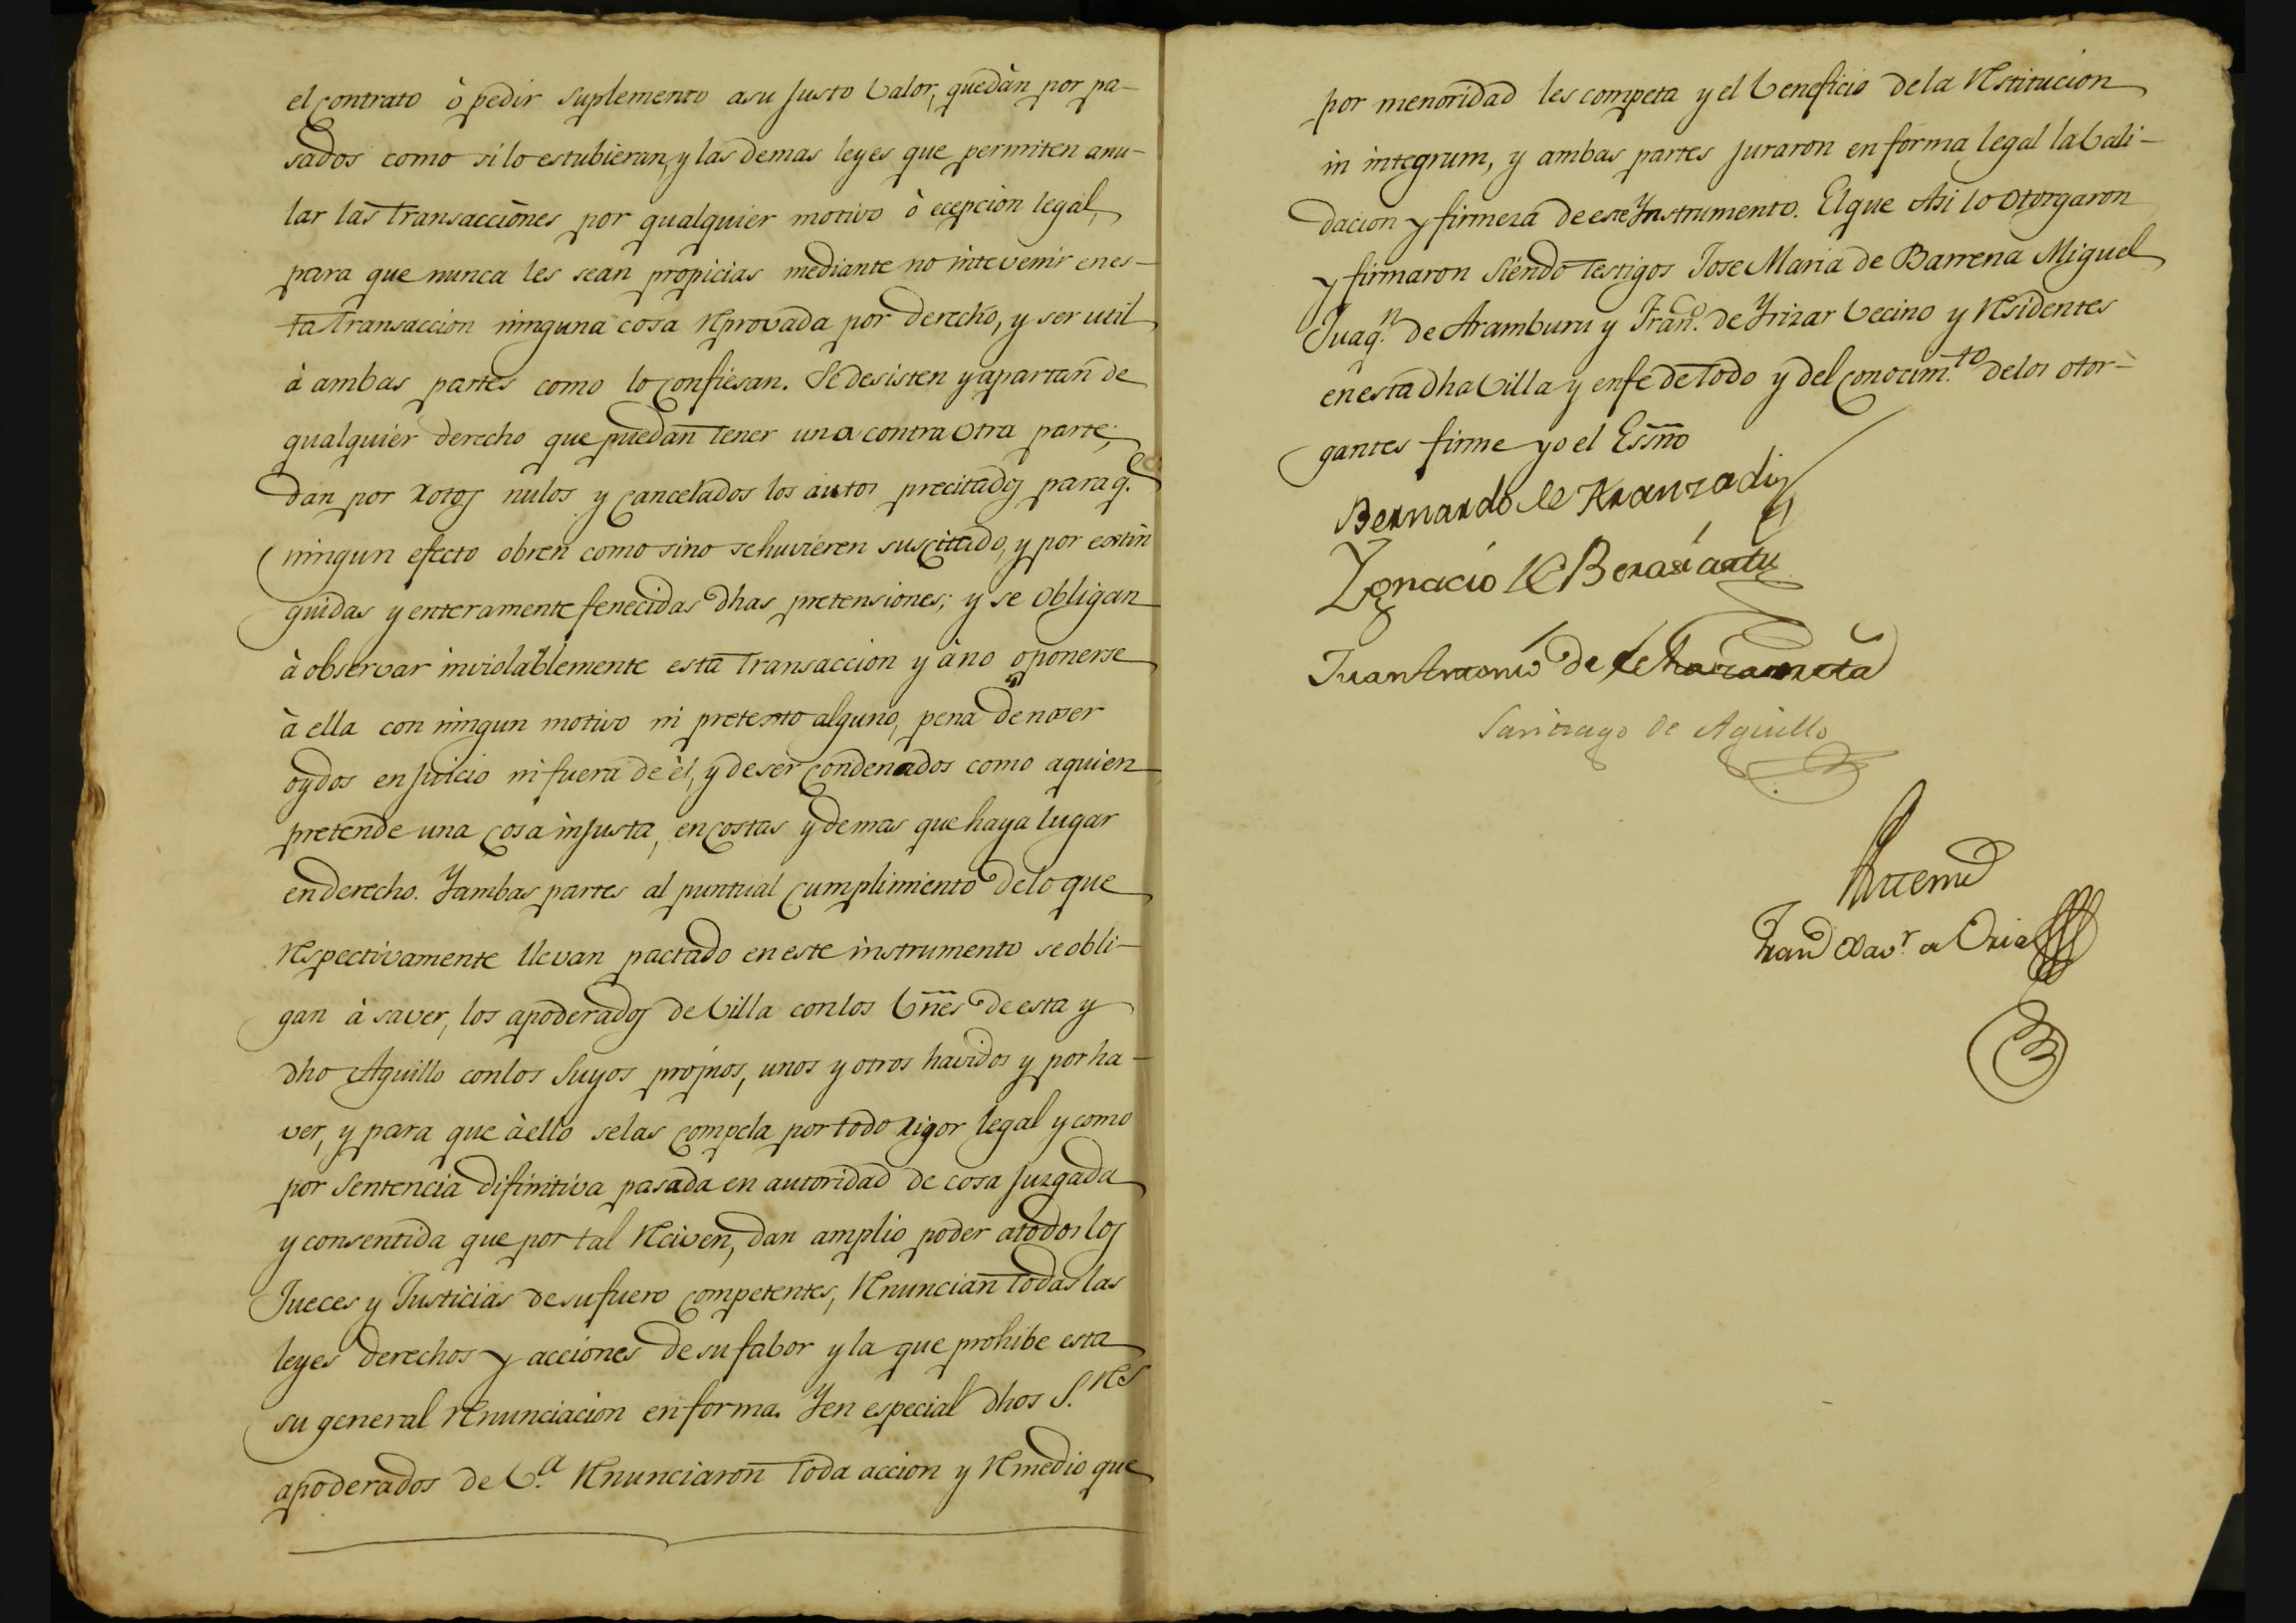 el contrato ò pedir suplemento asu justo valor, quedàn por pa-
sados como si lo estubieran, y las demas leyes que permiten anu-
lar las transacciònes por qualquier motivo ò ecepcion legal,
para que nunca les sean propicias mediante no intevenir en es-
ta transaccion ninguna cosa reprovada por derecho, y ser util
à ambas partes como lo confiesan. Se desisten y apartan de
qualquier derecho que puedan tener una contra otra parte;
dan por rotos nulos y cancelados los autos precitados para q.e
ningun efecto obren como sino se huvieren suscitado, y por extin
guidas y enteramente fenecidas dhas pretensiones; y se obligan
à observar inviolablemente esta transaccion y àno oponerse
à ella con ningun motivo ni pretexto alguno, pena de no ser
oydos en juicio ni fuera de èl, y de ser condenados como aquien
pretende una cosa injusta, en costas y demas que haya lugar
en derecho. Y ambas partes al puntual cumplimiento de lo que
respectivamente llevan pactado en este instrumento se obli-
gan à saver, los apoderados de Villa con los Vnes de esta y
dho Aguillo con los suyos propios, unos y otros havidos y por ha-
ver, y para que àello se las compela por todo rigor legal y como
por sentencia difinitiva pasada en autoridad de cosa juzgada
y consentida que por tal reciven, dan amplio poder atodos los
Jueces y Justicias de su fuero competentes, renuncian todas las
leyes derechos y acciones de su fabor y la que prohibe esta
su general renunciacion en forma. Y en especial dhos S.res
apoderados de V.a renunciaron toda accion y remedio que
por menoridad les competa y el beneficio de la restitucion
in integrum, y ambas partes juraron en forma legal la vali-
dacion y firmeza de este Ynstrumento. El que Asi lo otorgaron
y firmaron siendo testigos Jose Maria de Barrena Miguel
Juaq.n de Aramburu y Fran.co de Yrizar vecino y residentes
en esta dha Villa y en fe de todo y del conocim.to de los otor-
gantes firme yo el Essno
Bernardo de Aranzadi
Ygnacio de Berasiartu
Juan Antonio de
Santiago de Aguillo
Antemi
Fran.co Xav.r de Oria